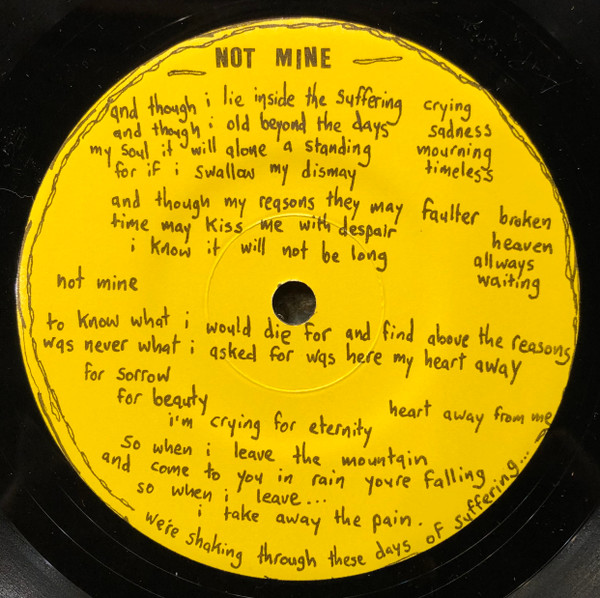 NOT MINE
and though i lie inside the suffering crying
and though i old beyond the days sadness
my soul it will alone a standing mourning
for if i swallow my dismay timeless
and though my reasons they may faulter broken
time may kiss me with despair heaven
i know it will not be long allways
waiting
not mine
to know what i would die for and find above the reasons
was never what i asked for was here my heart away
for sorrow
for beauty heart away from me
i'm crying for eternity
so when i leave the mountain
and come to you in rain youre falling
so when i leave...
i take away the pain.
we're shaking through these days of suffering...